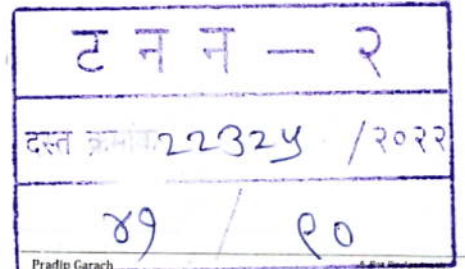 ट न न - २
दस्त क्रमांक 22324 /२०२२
४१ / ९०
Pradip Garach